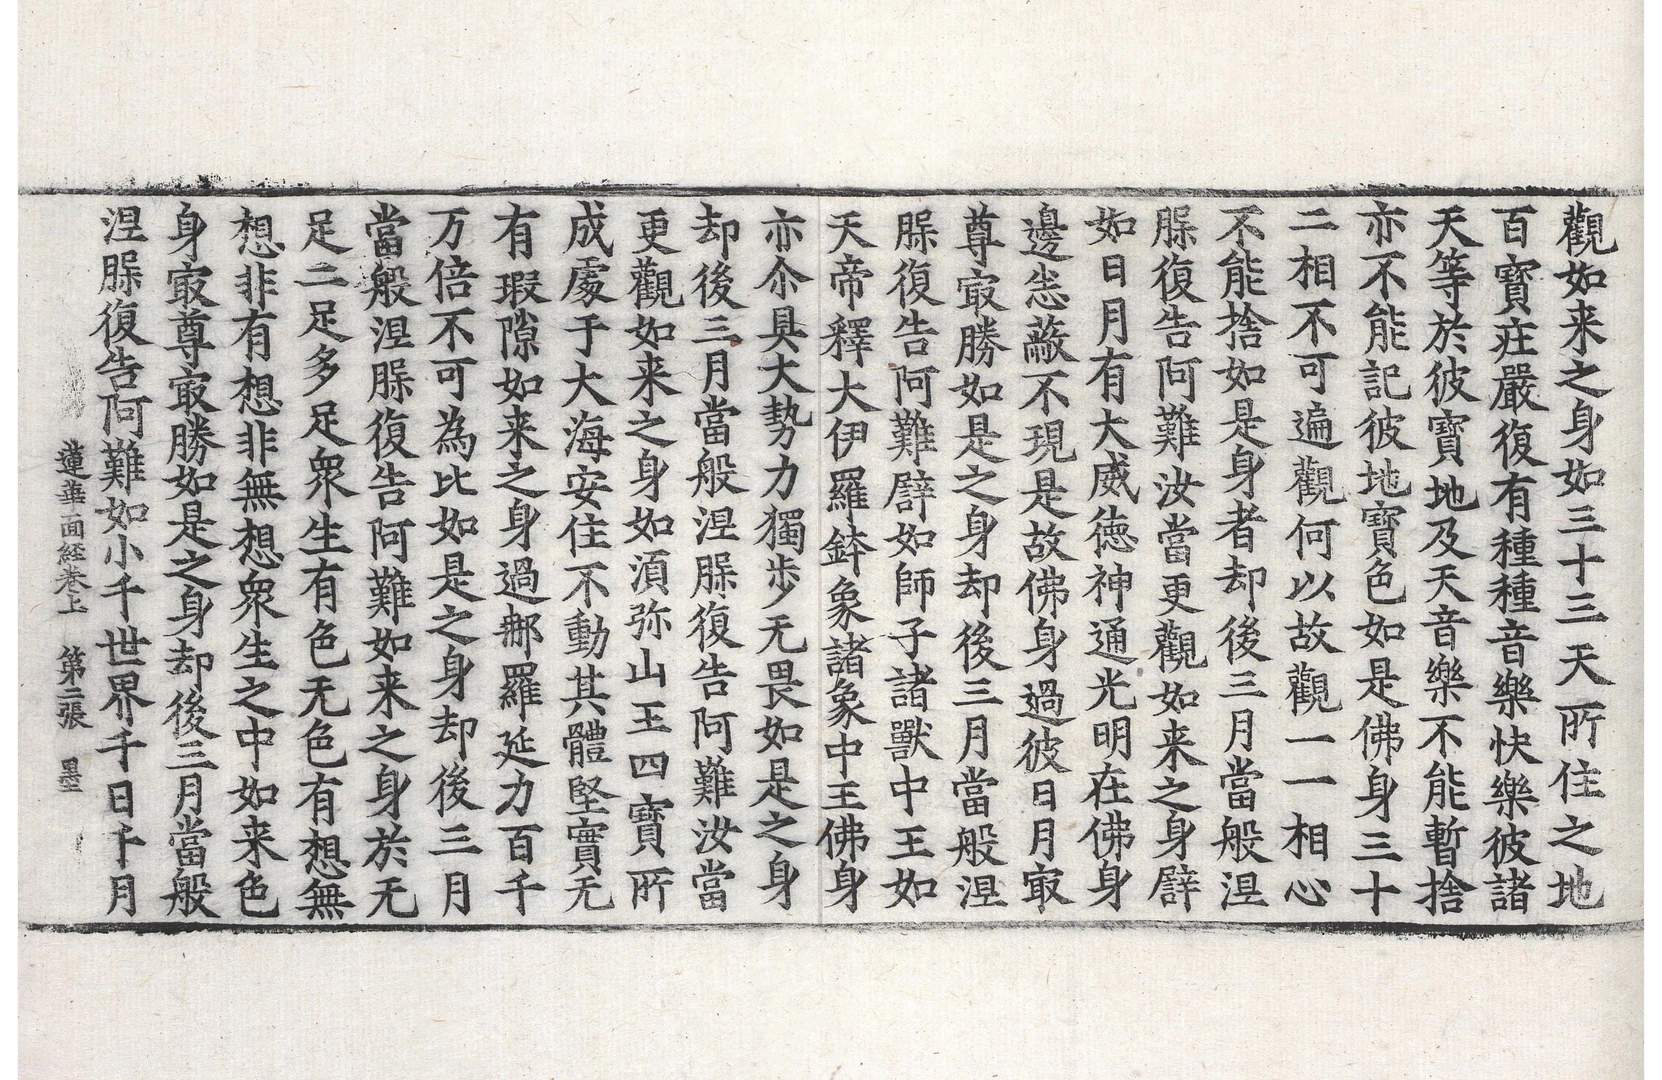 觀如来之身如三十三天所住之地
百寶莊嚴復有種種音樂快樂彼諸
天等於彼寶地及天音樂不能暫捨
亦不能記彼地寶色如是佛身三十
二相不可遍觀何以故觀一一相心
不能捨如是身者却後三月當般涅
𦙶復告阿難汝當更觀如来之身譬
如日月有大威德神通光明在佛身
邊𢘻蔽不現是故佛身過彼日月㝡
尊㝡勝如是之身却後三月當般涅
𦙶復告阿難譬如師子諸獸中王如
天帝釋大伊羅鉢象諸象中王佛身
亦尒具大勢力獨步无畏如是之身
却後三月當般涅𦙶復告阿難汝當
更觀如来之身如湏弥山王四寶所
成處于大海安住不動其體堅實无
有瑕隙如来之身過𨚗羅延力百千
万倍不可為比如是之身却後三月
當般涅𦙶復告阿難如来之身於无
足二足多足衆生有色无色有想無
想非有想非無想衆生之中如来色
身㝡尊㝡勝如是之身却後三月當般
涅𦙶復告阿難如小千世界千日千月
蓮華面経卷上 第二張 墨